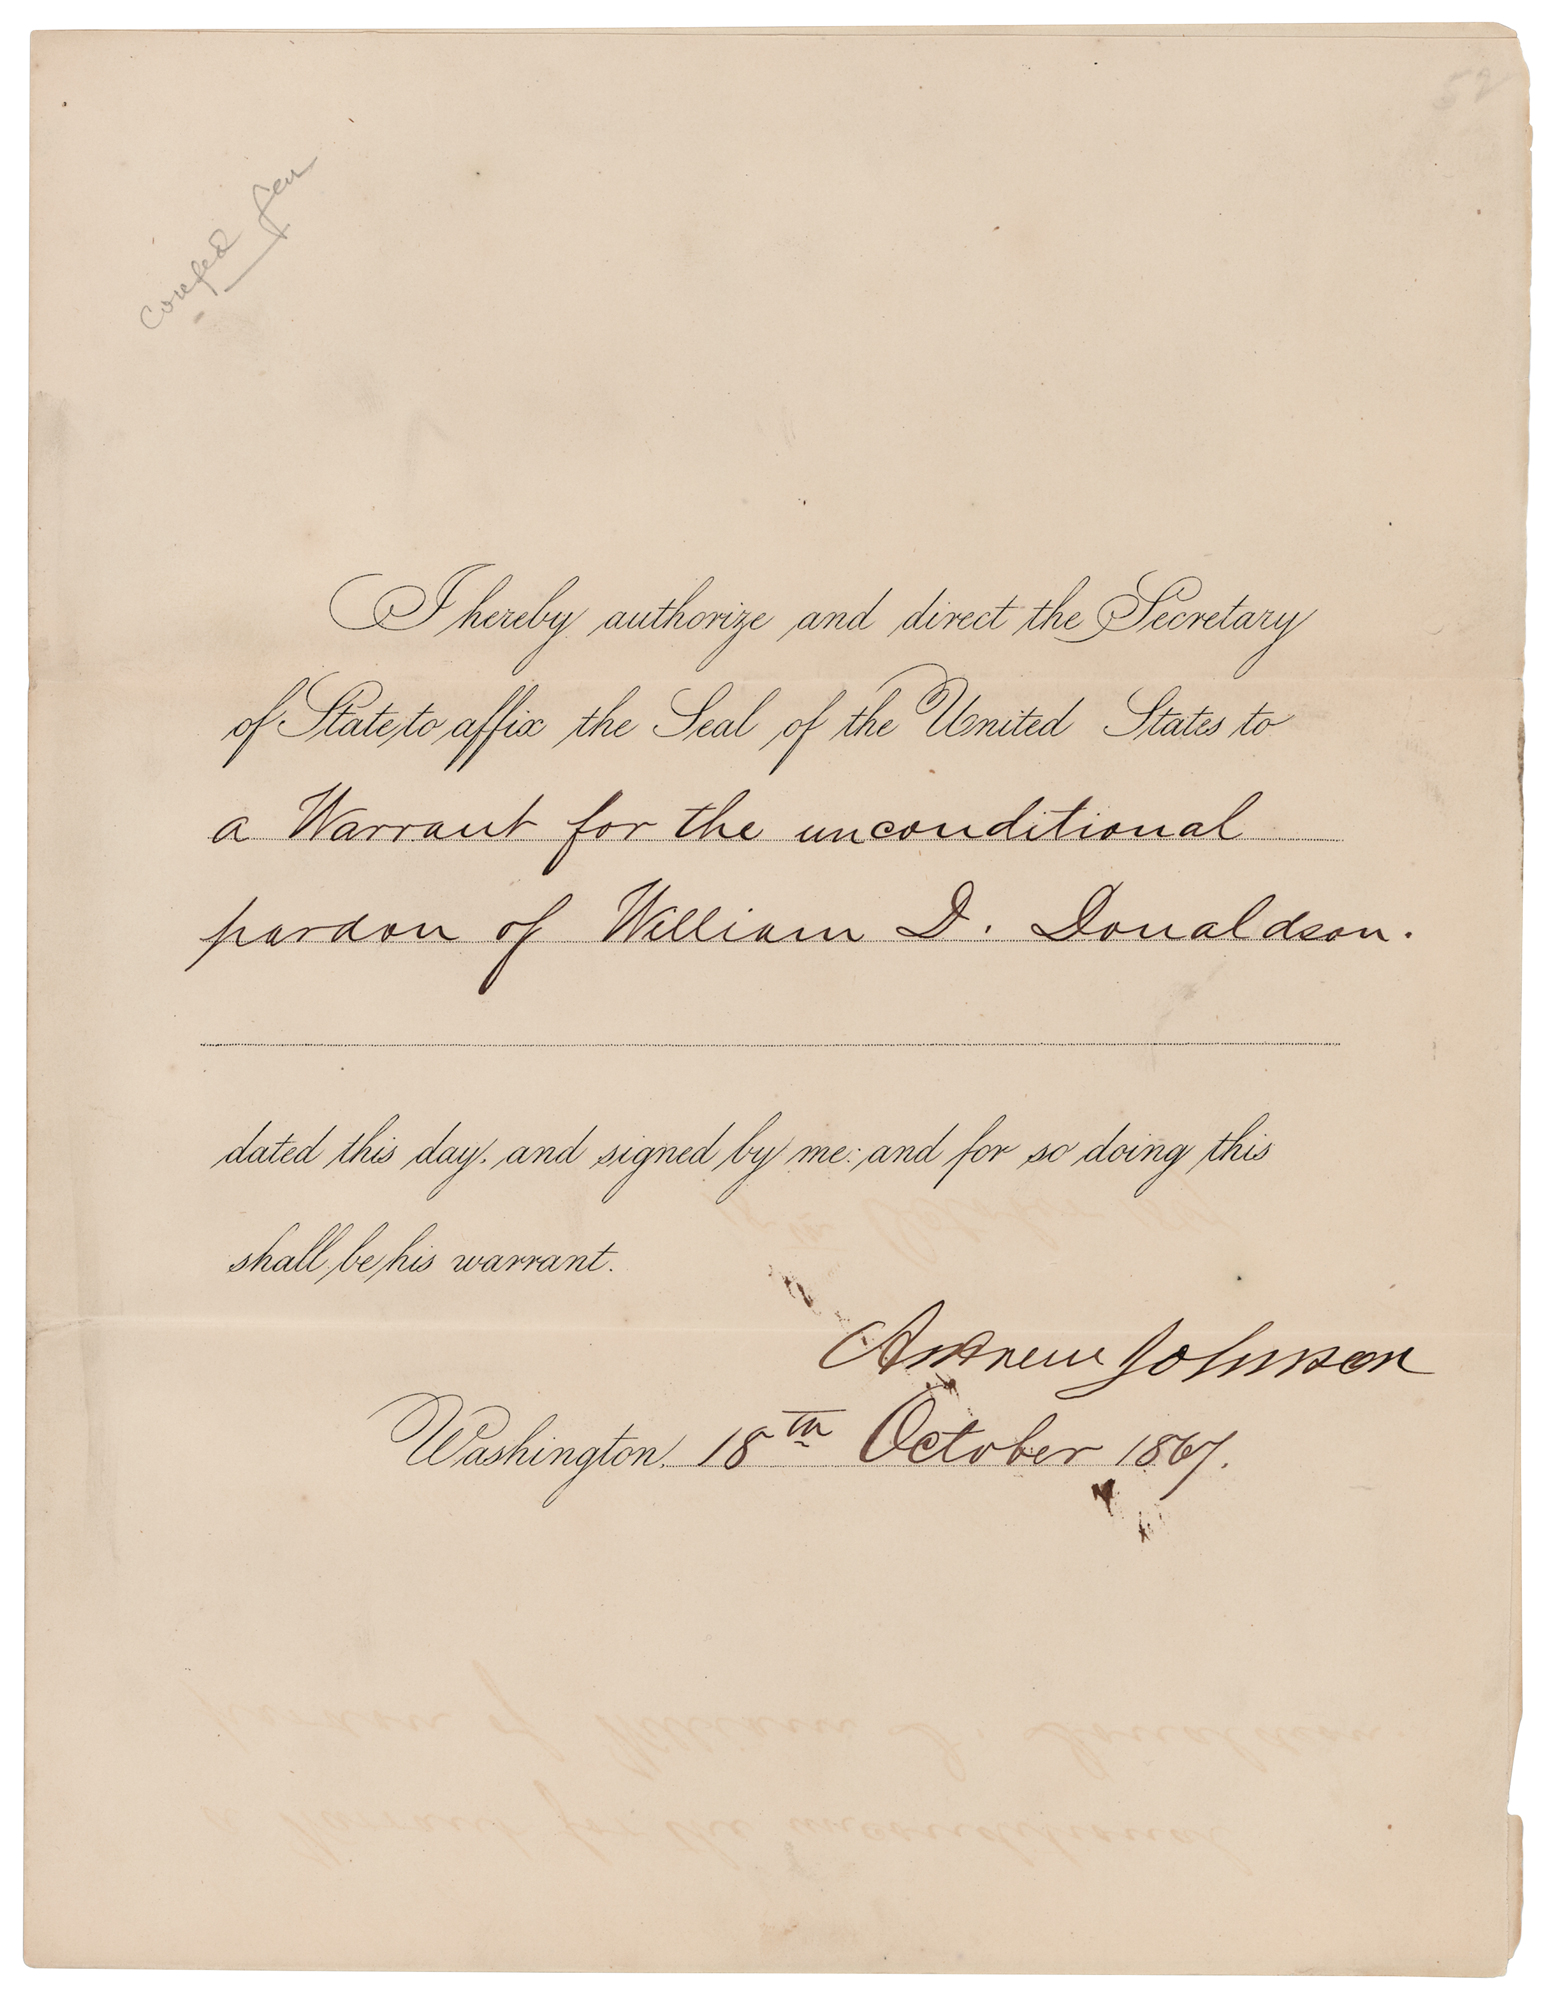 52
confed Gen
I hereby authorize and direct the Secretary
of State to affix the Seal of the United States to
a Warrant for the unconditional
pardon of William D. Donaldson.
dated this day, and signed by me: and for so doing this
shall be his warrant.
Andrew Johnson
Washington, 18th October 1867.